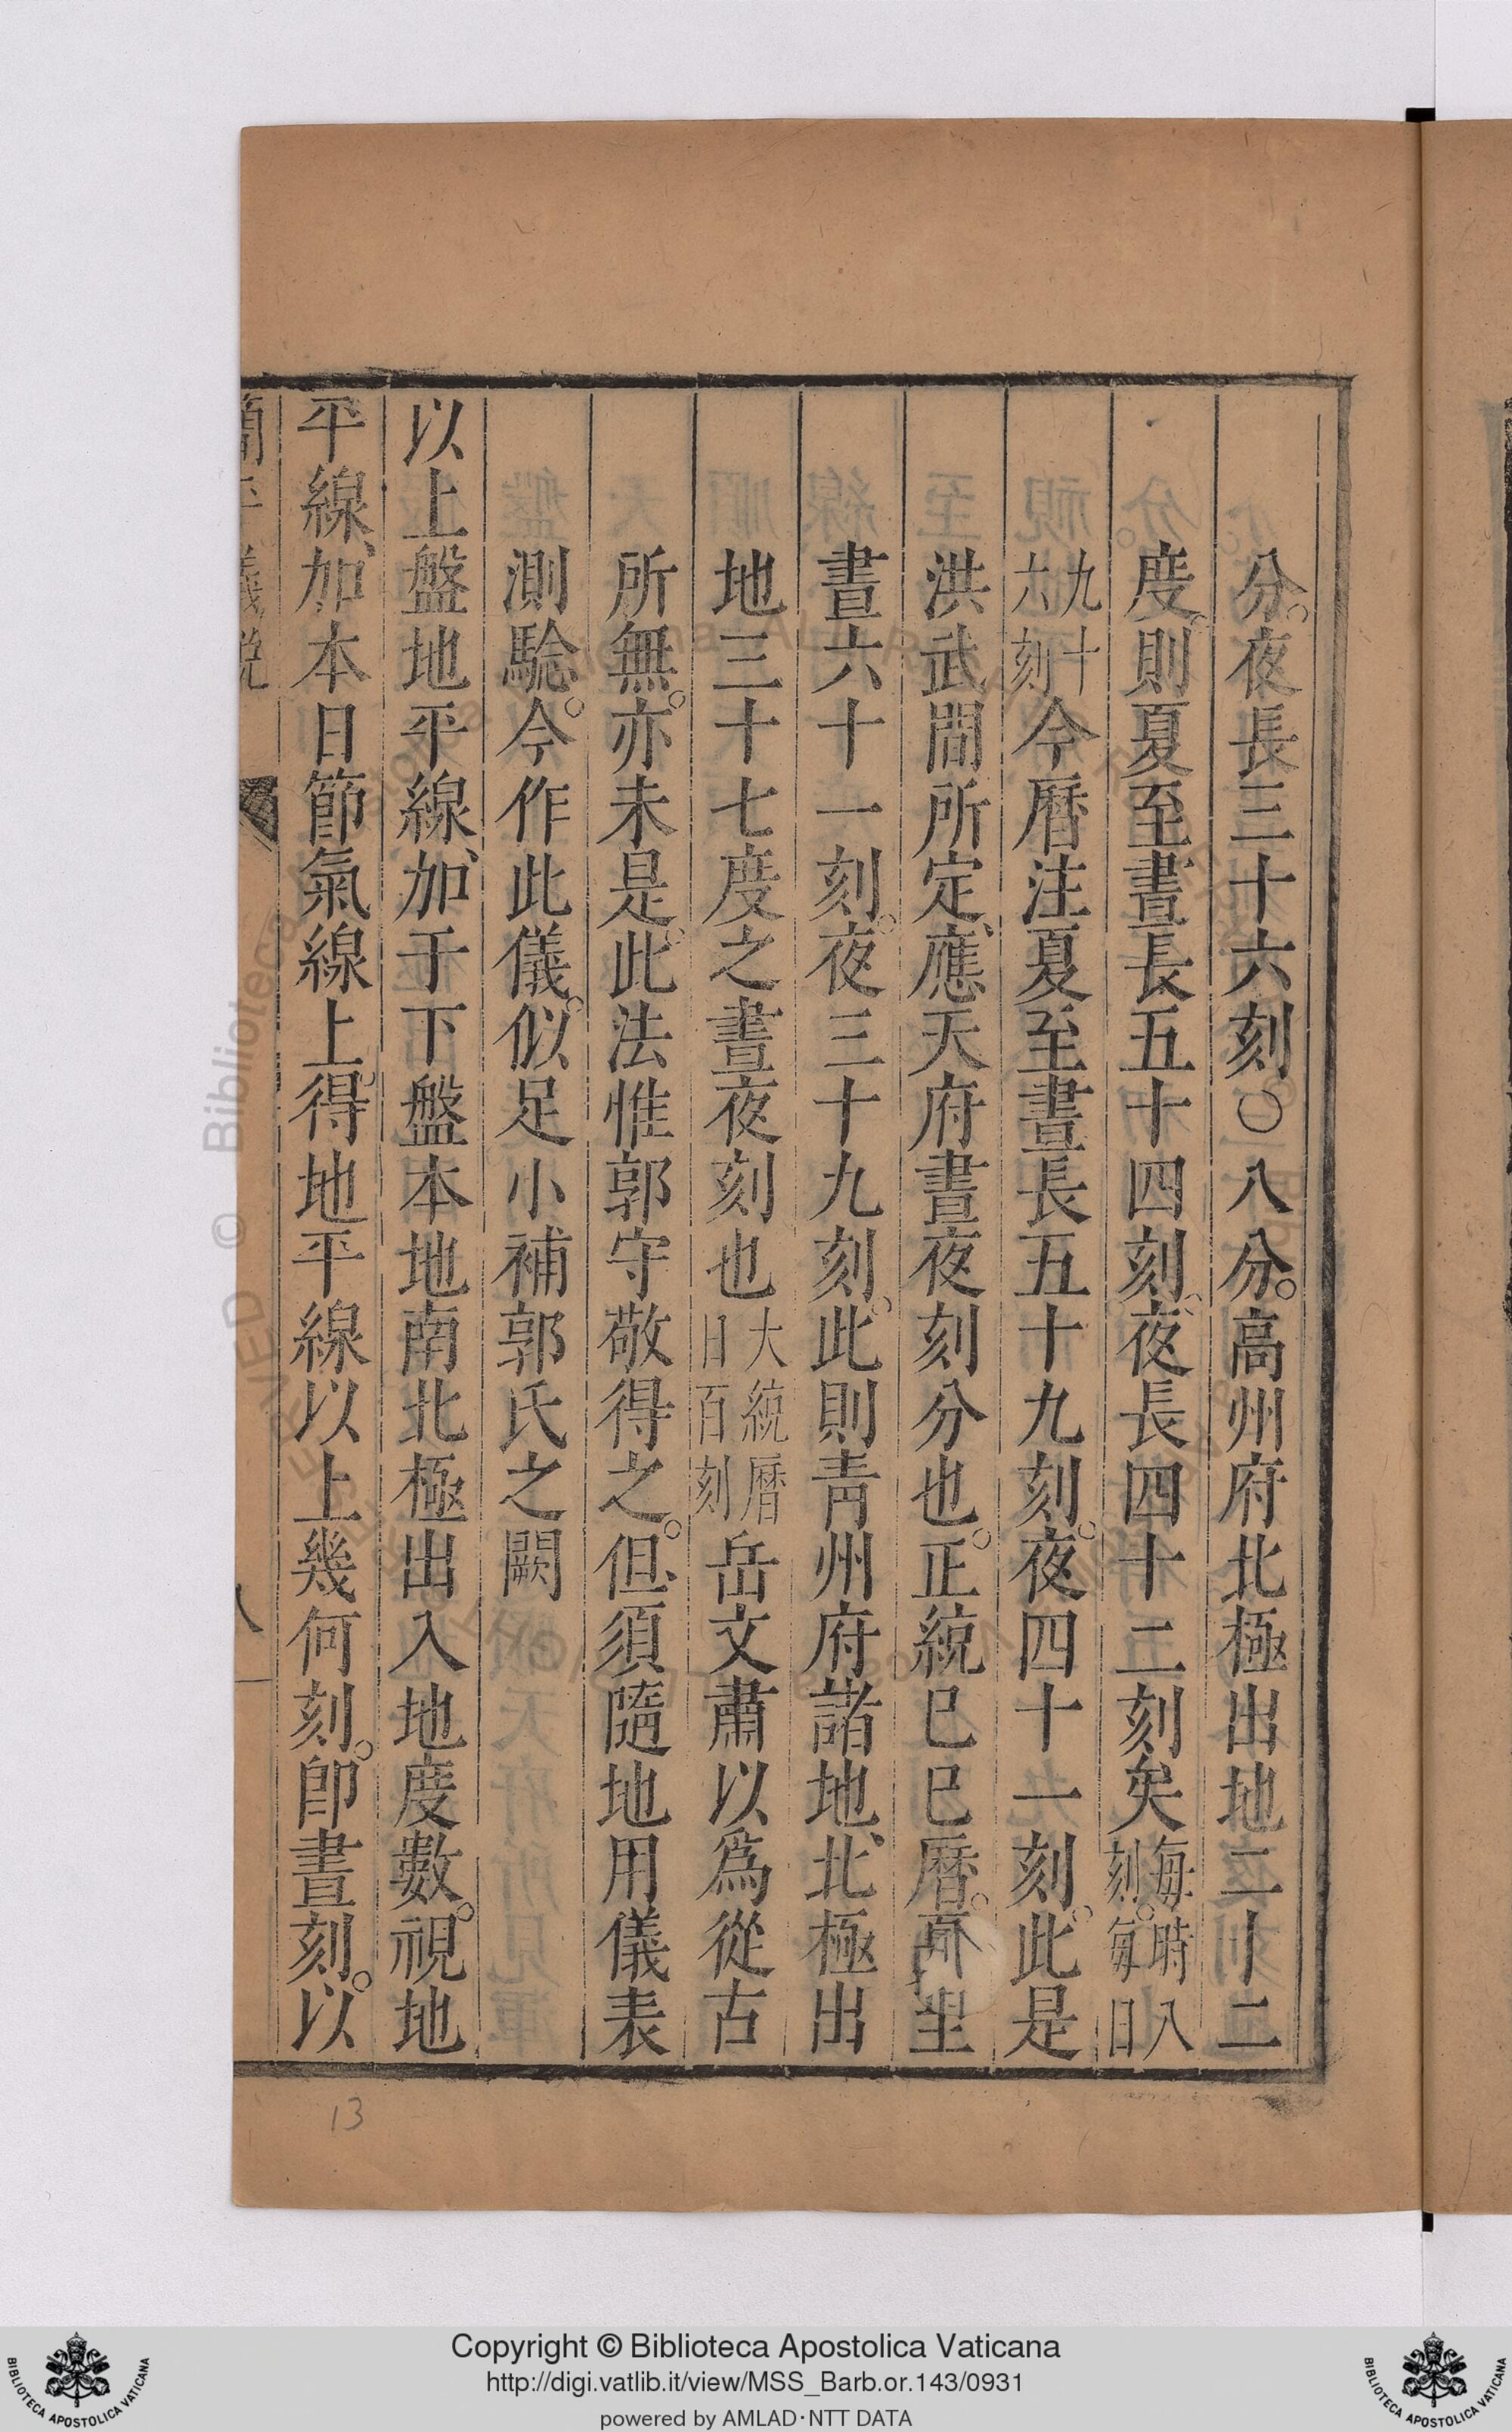 分。夜長三十六刻〇八分。高州府北極出地二十二
度。則夏至晝長五十四刻。夜長四十二刻矣每時八刻。每日
九十六刻今曆注夏至晝長五十九刻。夜四十一刻。此是
洪武間所定、應天府晝夜刻分也。正統己巳曆。夏至
晝六十一刻。夜三十九刻。此則青州府諸地、北極出
地三十七度之晝夜刻也大統曆日百刻岳文肅以爲從古
所無。亦未是。此法惟郭守敬得之。但、須隨地用儀表
測騐。今作此儀。似足小補郭氏之闕
以上盤地平線、加于下盤本地南北極出入地度數。視地
平線、加本日節氣線上、得地平線以上幾何刻。即晝刻。以
簡平儀說
八
13
© Biblioteca
Copyright © Biblioteca Apostolica Vaticana
http://digi.vatlib.it/view/MSS_Barb.or.143/0931
powered by AMLAD·NTT DATA
BIBLIOTECA APOSTOLICA VATICANA
BIBLIOTECA APOSTOLICA VATICANA